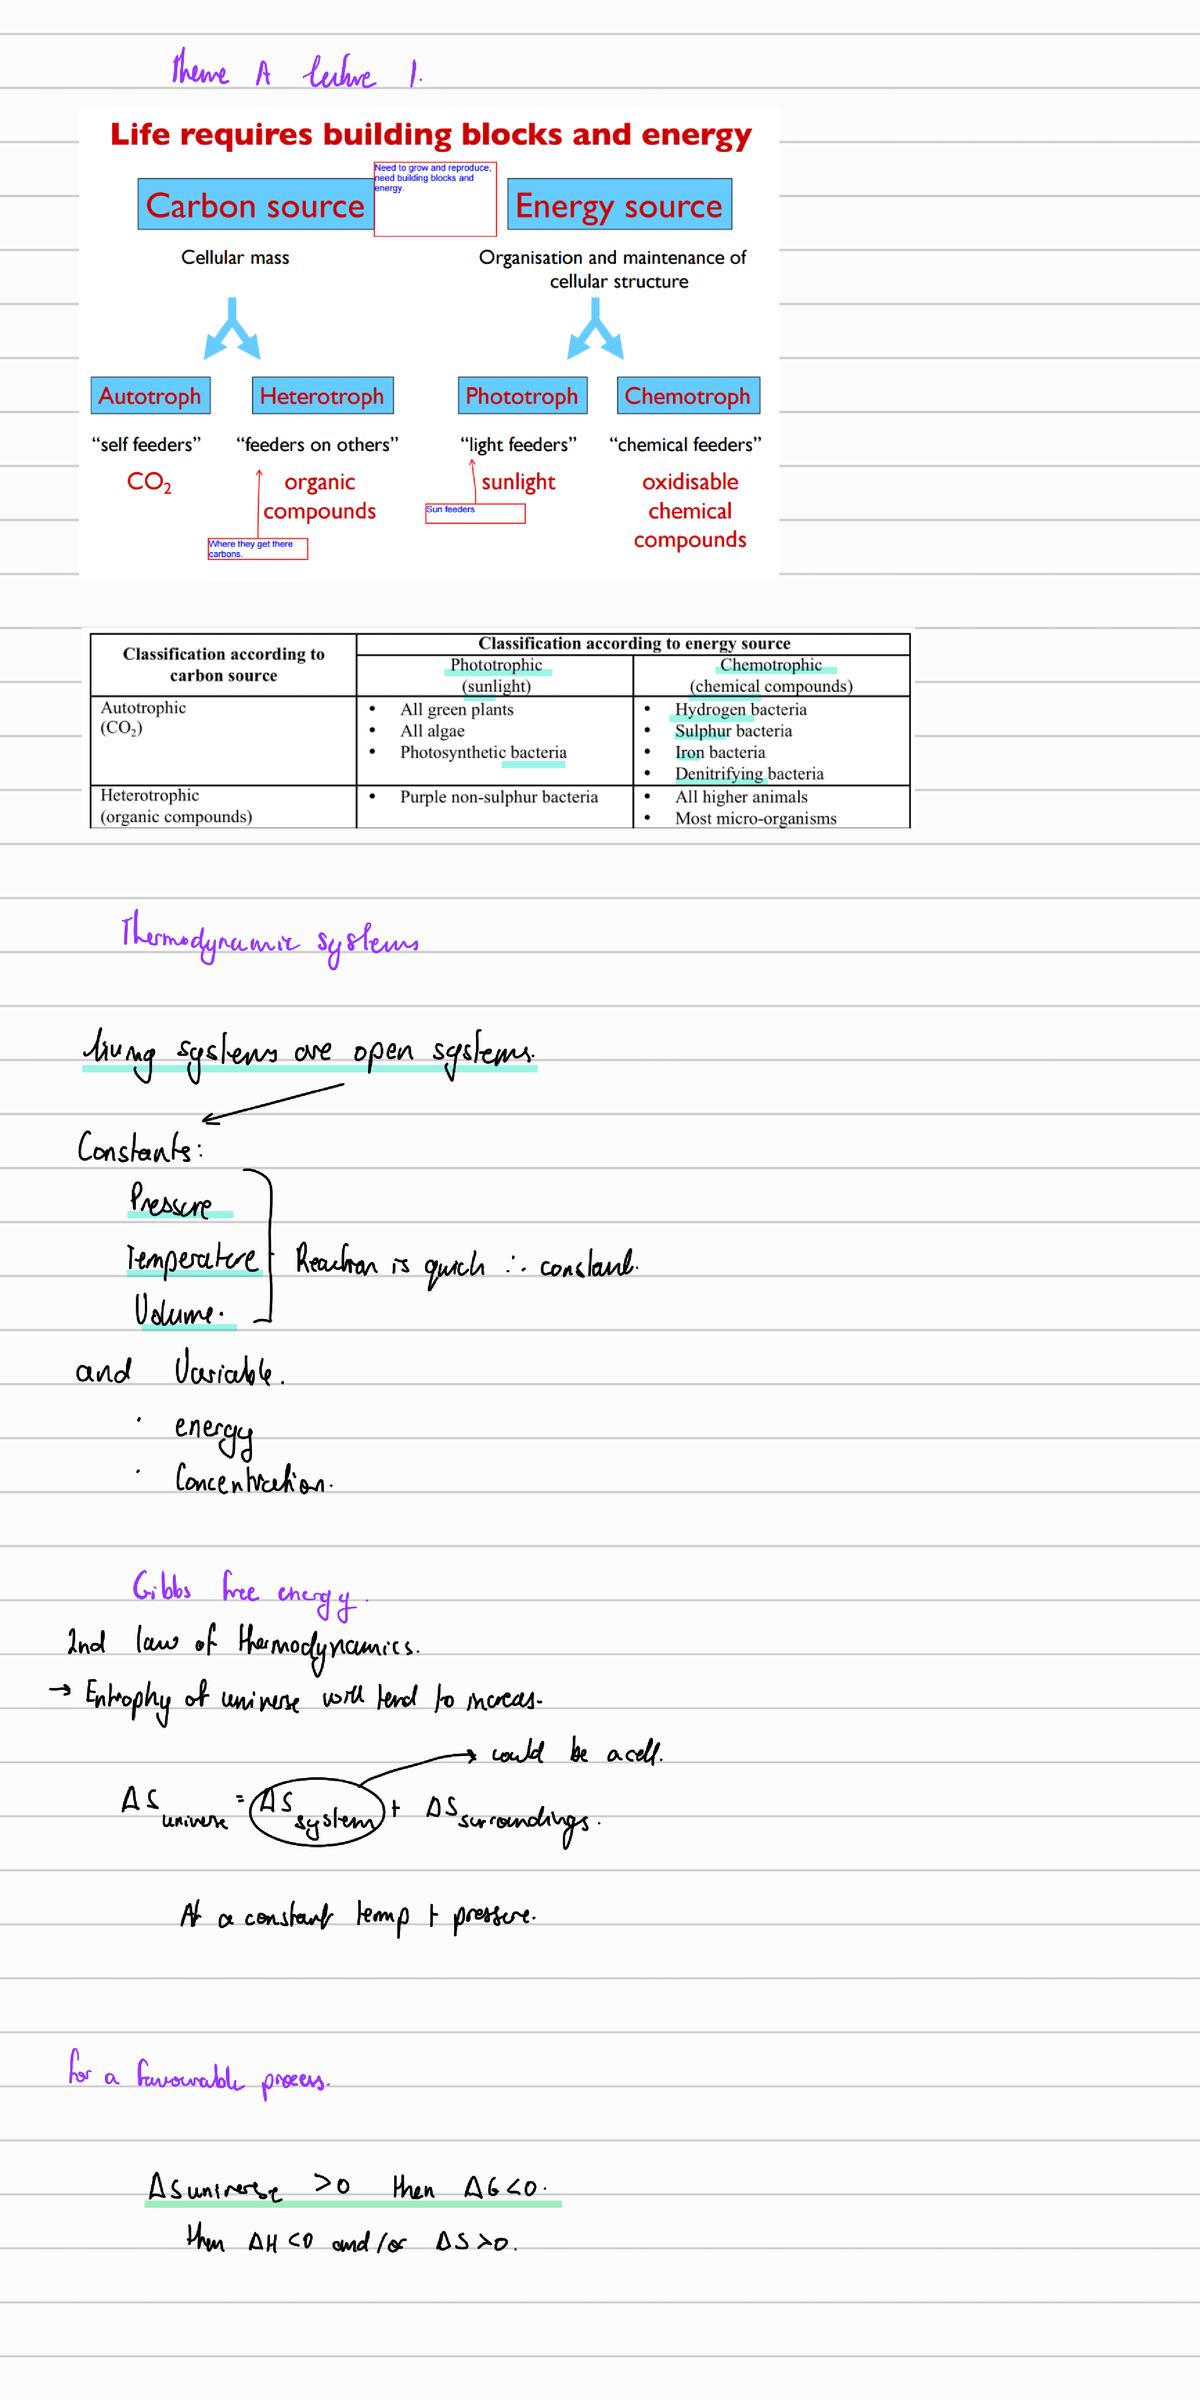 Theme A lecture 1.
Life requires building blocks and energy
Need to grow and reproduce,
need building blocks and
energy.
Carbon source
Energy source
Cellular mass
Organisation and maintenance of
cellular structure
Autotroph
Heterotroph
Phototroph
Chemotroph
“self feeders”
“feeders on others”
“light feeders”
“chemical feeders”
CO₂
organic
compounds
sunlight
oxidisable
chemical
compounds
Sun feeders
Where they get there
carbons.
Classification according to
carbon source
Classification according to energy source
Phototrophic
(sunlight)
Chemotrophic
(chemical compounds)
Autotrophic
(CO₂)
• All green plants
• All algae
• Photosynthetic bacteria
• Hydrogen bacteria
• Sulphur bacteria
• Iron bacteria
• Denitrifying bacteria
Heterotrophic
(organic compounds)
• Purple non-sulphur bacteria
• All higher animals
• Most micro-organisms
Thermodynamic systems
living systems are open systems.
Constants:
Pressure
Temperature
Volume.
Reaction is quick ∴ constant.
and Variable.
· energy
· Concentration.
Gibbs free energy.
2nd law of thermodynamics.
→ Entrophy of universe will tend to increas-
→ could be a cell.
ΔS universe = ΔS system + ΔS surroundings.
At a constant temp + pressure.
for a favourable process.
ΔS universe >0 then ΔG<0.
then ΔH<0 and/or ΔS>0.